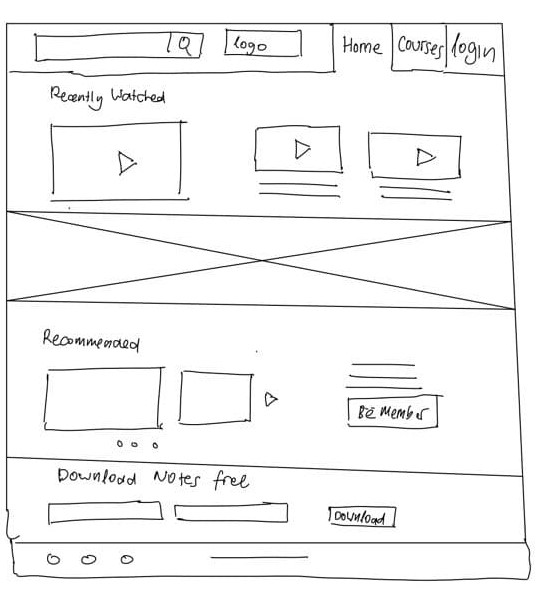 logo
Home
Courses
login
Recently Watched
Recommended
BE Member
Download Notes free
Download